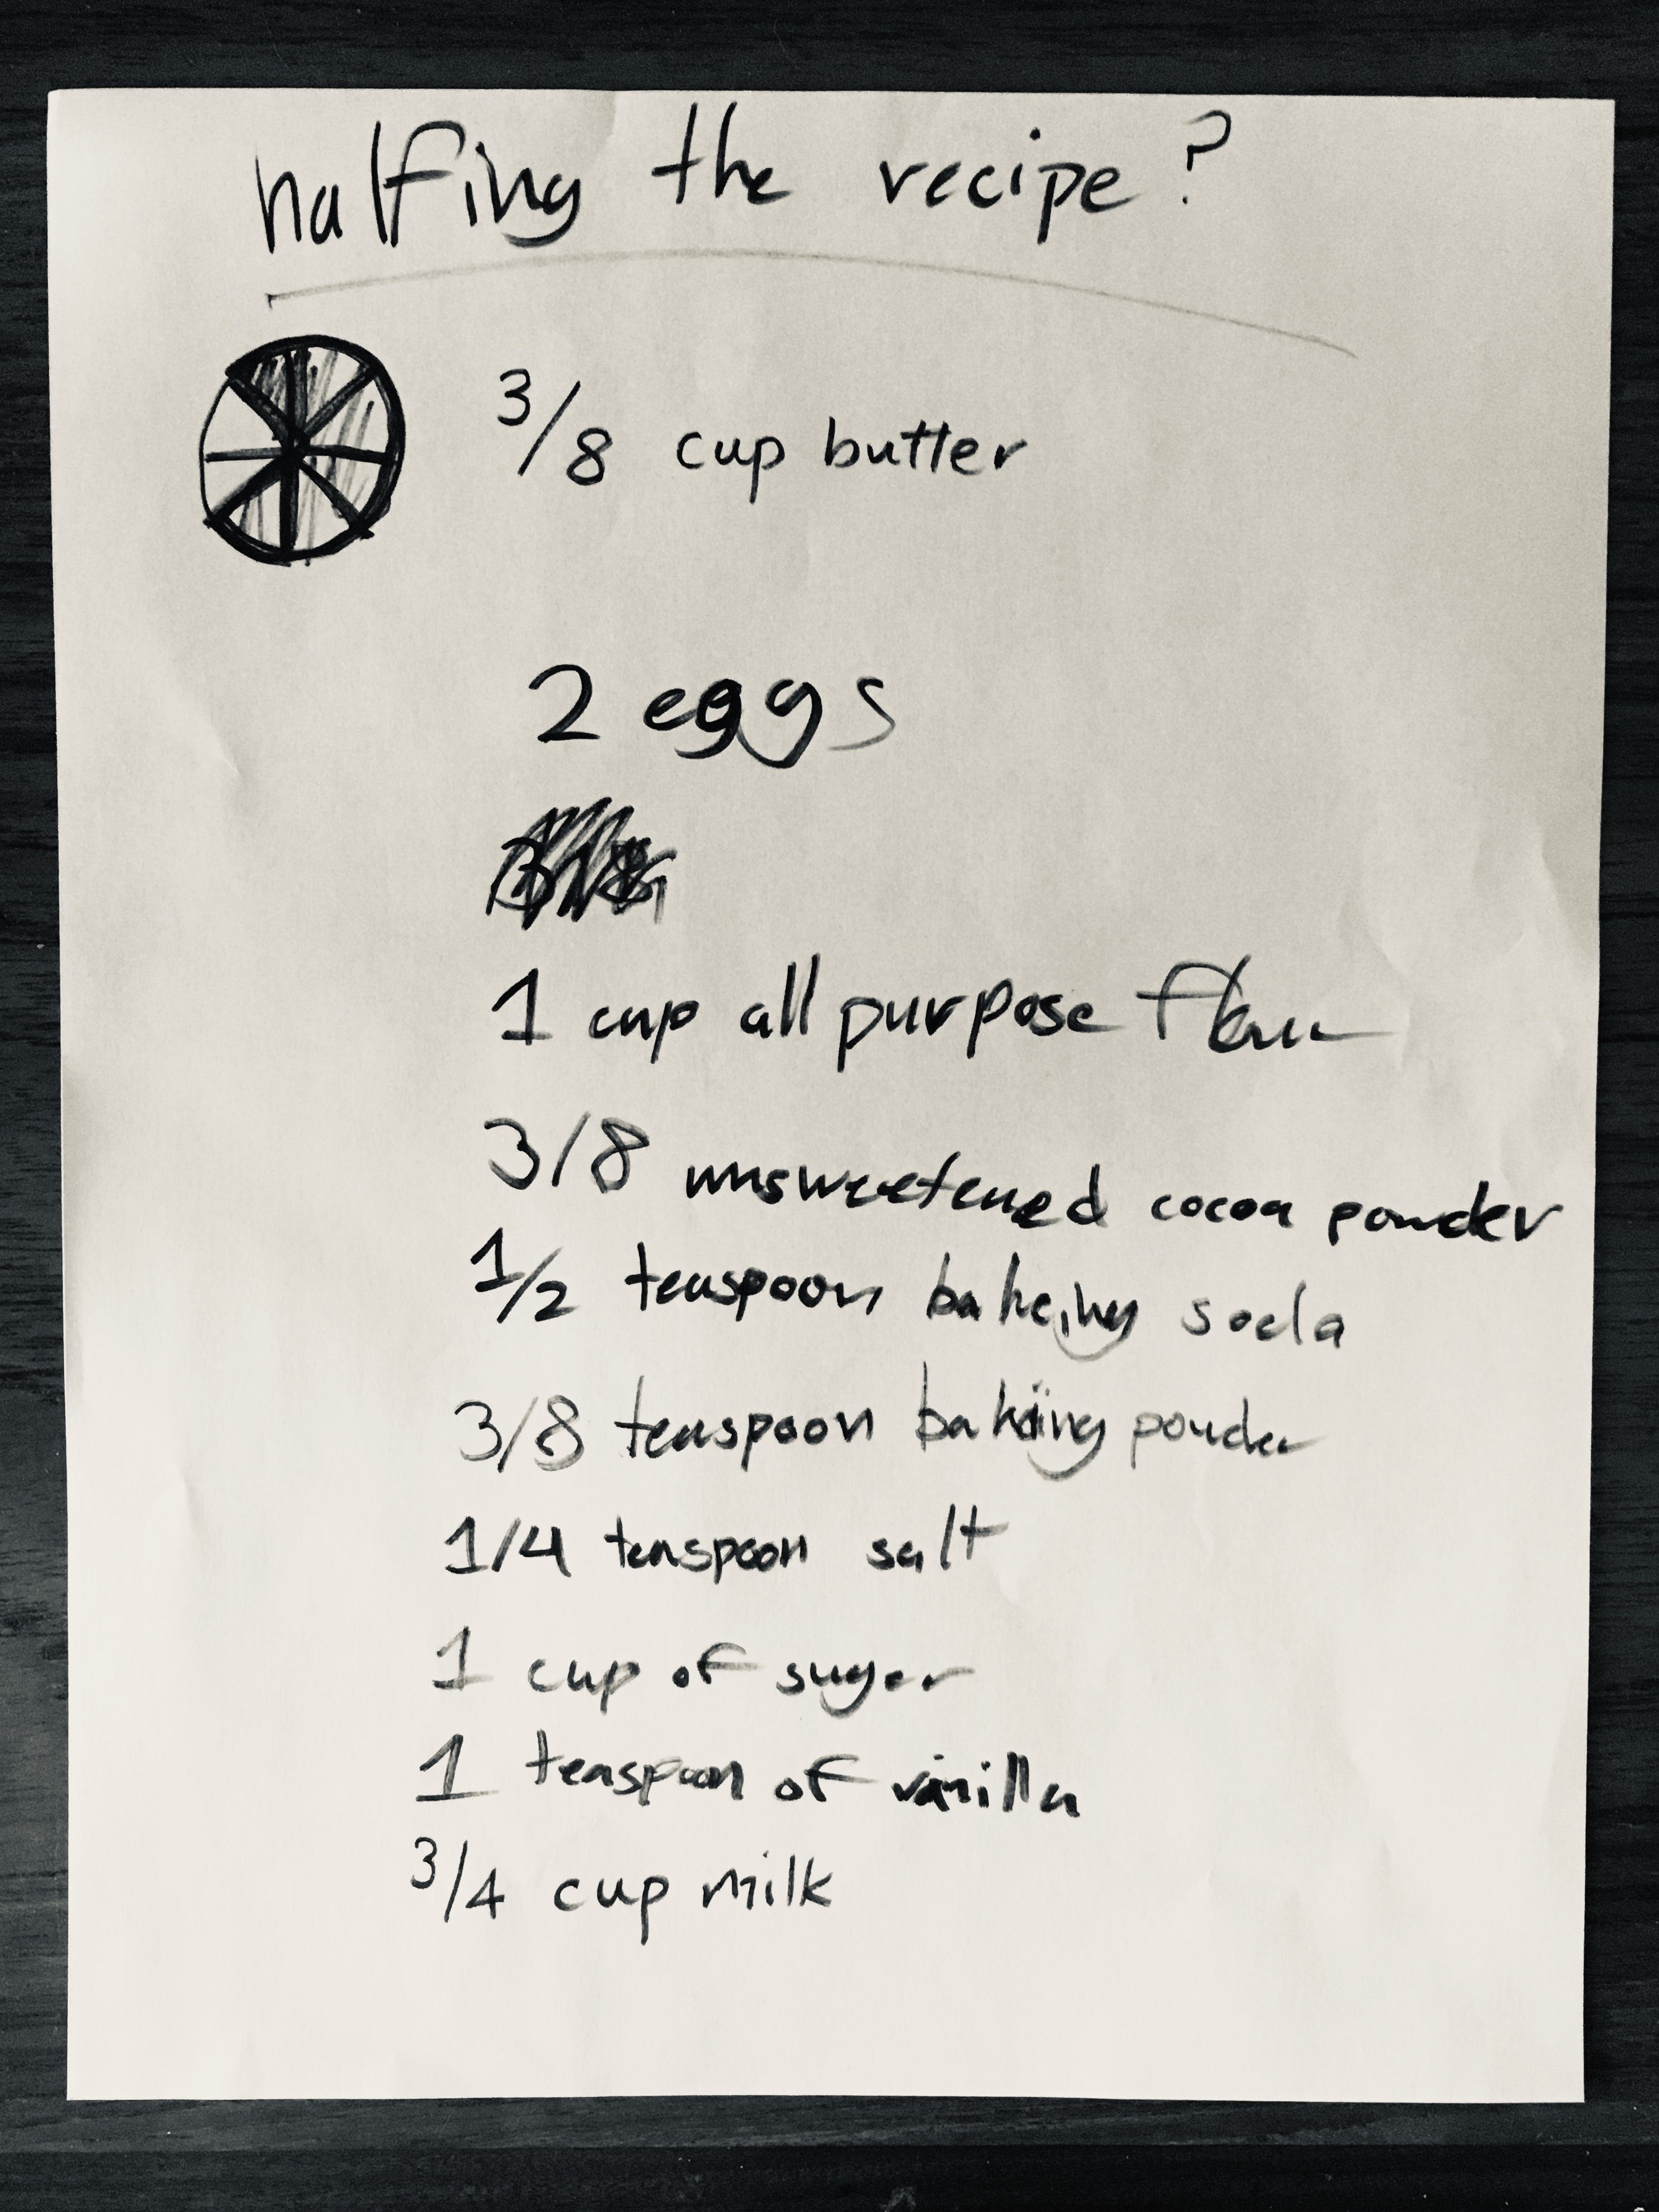 halfing the recipe?
3/8 cup butter
2 eggs
1 cup all purpose flour
3/8 unsweetened cocoa powder
1/2 teaspoon bakeing soda
3/8 teaspoon baking powder
1/4 teaspoon salt
1 cup of suger
1 teaspoon of vanilla
3/4 cup milk